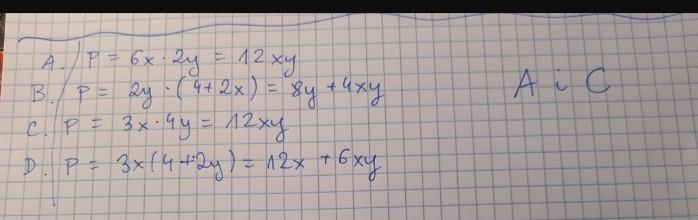 A. P = 6x · 2y = 12xy
B. P = 2y · (4+2x) = 8y + 4xy
C. P = 3x · 4y = 12xy
D. P = 3x(4+2y) = 12x + 6xy
A i C